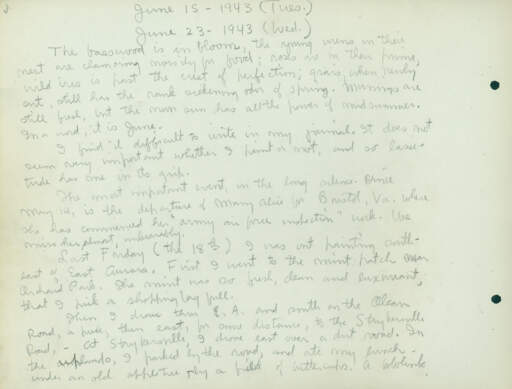 June 15 - 1943 (Tues.)
June 23 - 1943 (Wed.)
The basswood is in bloom, the young wrens in their
nest are clamoring noisily for food; roses are in their prime,
wild iris is past the crest of perfection; grass, when newly
cut, still has the rank sickening odor of spring. Mornings are
still fresh, but the noon sun has all the power of midsummer.
In a word, it is June.
I find it difficult to write in my journal. It does not
seem very important whether I paint or not, and so lassi-
tude has one in its grip.
The most important event, in the long silence since
May 14, is the departure of Mary Alice for Bristol, Va. where
she has commenced her "army air force inspection" work. We
miss her almost unbearably.
Last Friday (the 18th) I was out painting south-
east of East Aurora. First I went to the mint patch near
Orchard Park. The mint was so fresh, clean and luxuriant,
that I pick a shopping bag full.
Then I drove thru E. A. and south on the Olean
Road, a piece, then east, for some distance, to the Strykersville
Road, - At Strykersville, I drove east over a dirt road. In
the uplands, I parked by the road, and ate my lunch -
under an old appletree by a field of buttercups. A